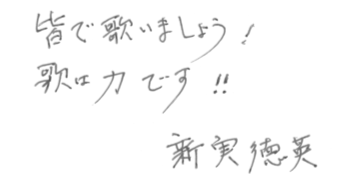 皆で歌いましょう！
歌は力です!!
新実徳英